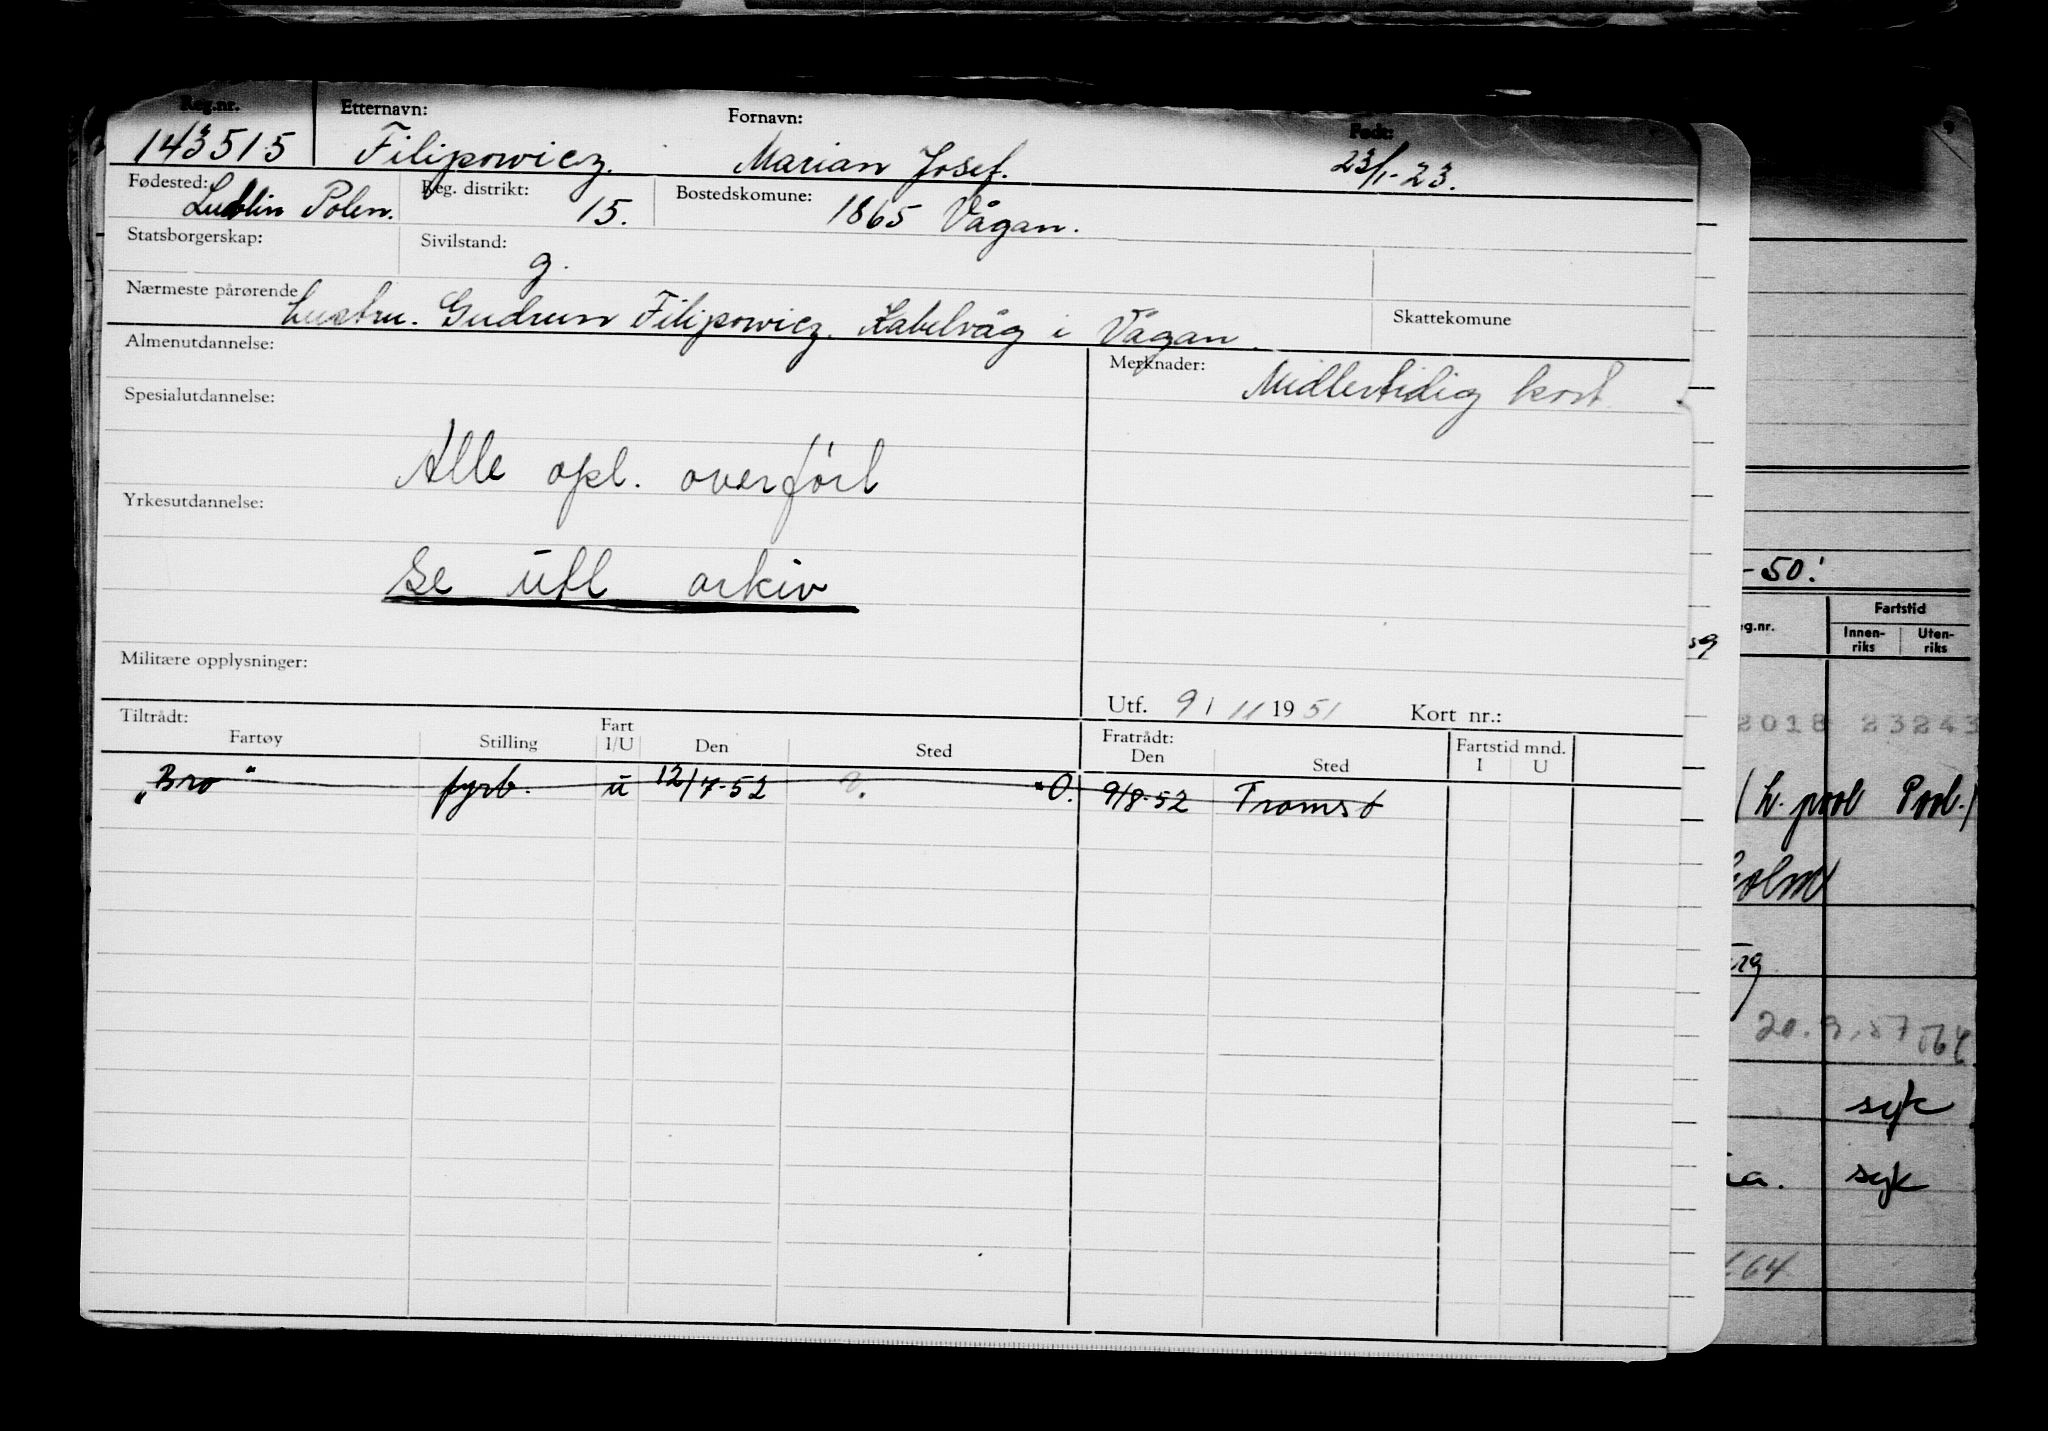 Reg.nr. Etternavn: Fornavn: Født:
143515 Filipowicz. Marian Josef. 23/1-23.
Fødested: Reg. distrikt: Bostedskomune:
Lublin Polen. 15. 1865 Vågan.
Statsborgerskap: Sivilstand:
g.
Nærmeste pårørende Skattekomune
hustru. Gudrun Filipowicz. Kabelvåg i Vågan.
Almenutdannelse: Merknader:
Midlertidig kort
Spesialutdannelse:
Alle opl. overført
Yrkesutdannelse:
-50!
Se utl arkiv
Fartstid
eg.nr. Innen- Uten-
riks riks
59
Militære opplysninger:
Utf. 9/ 11 1951 Kort nr.:
2018 23243
Tiltrådt: Fratrådt:
Fartøy Stilling Fart I/U Den Sted Den Sted Fartstid mnd. I U
"Bro" fyrb. u 12/7-52 O. "O. 9/8-52 Tromsø
(h. pool Pool.)
holm
rg
20.9.57
syk
a. syk
64